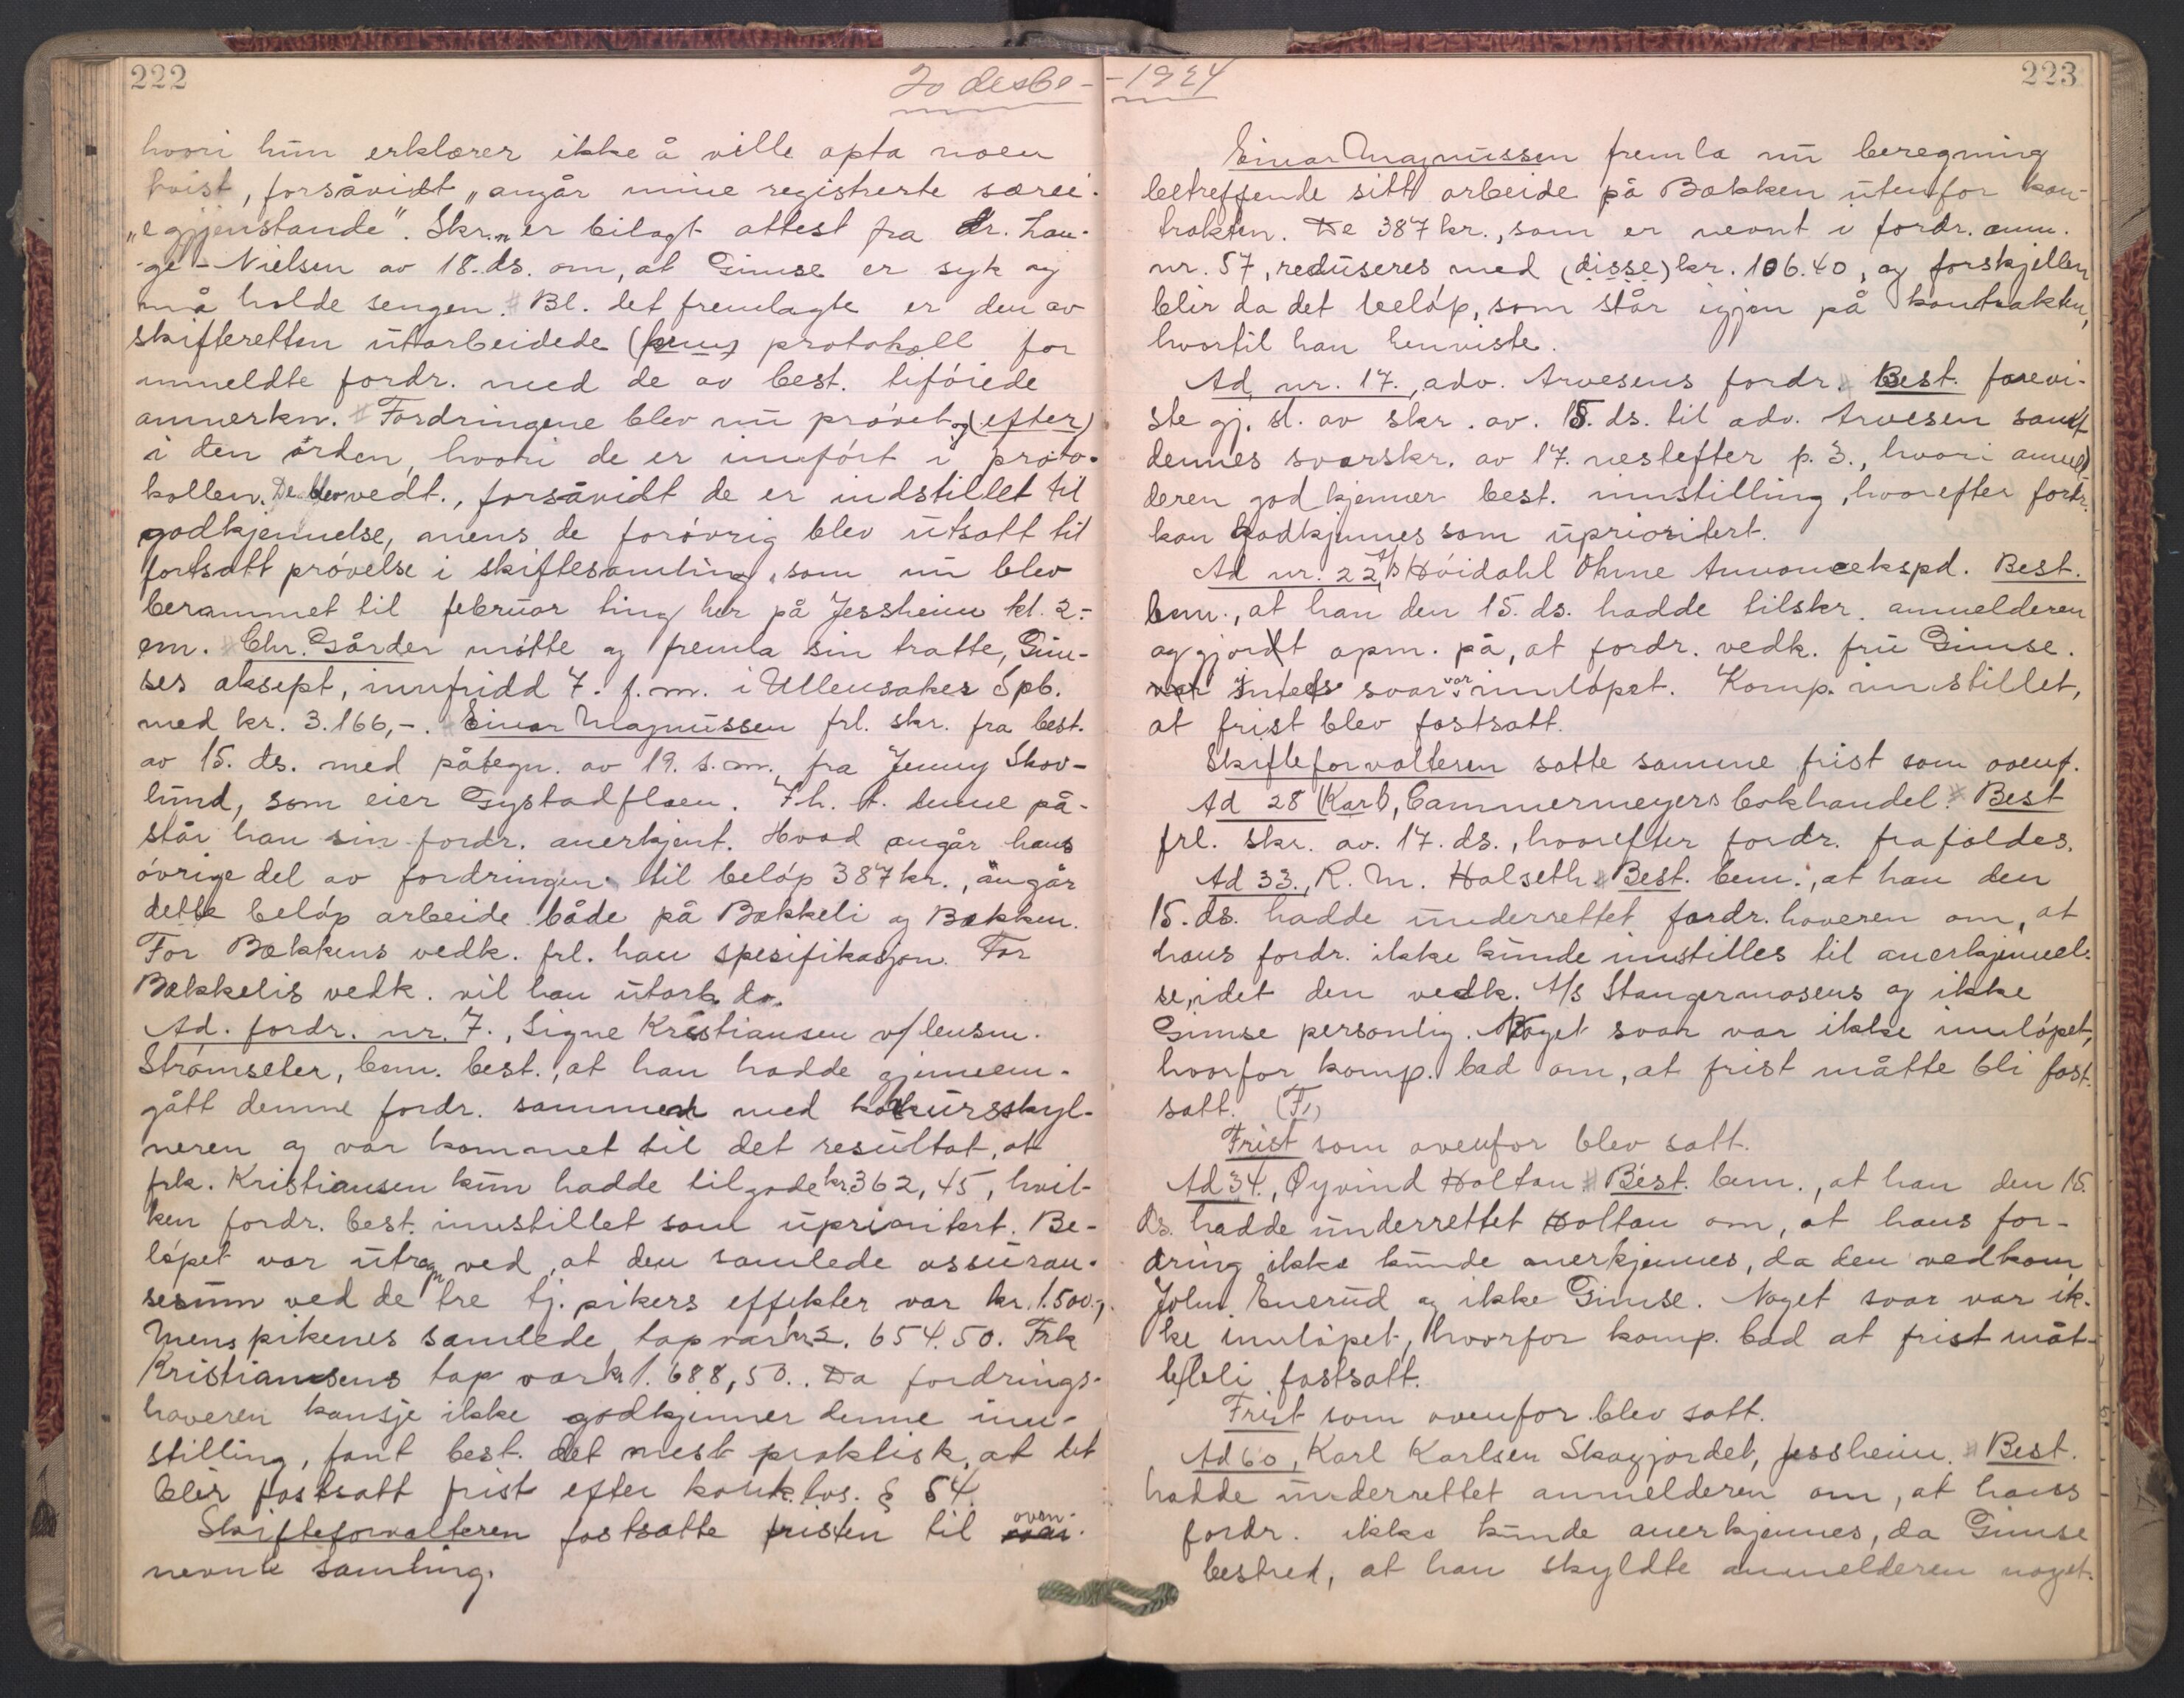 222
20 desbe-
hvori hun erklærer ikke å ville opta noen
tvist, forsåvidt „angår mine registrerte særei-
„egjenstande". Skr.n er bilagt attest fra dr. Lan-
ge-Nielsen av 18. ds. om, at Gimse er syk og
må holde sengen. # Bl. det fremlagte er den av
skifteretten utarbeidede protokoll for
anmeldte fordr. med de av best. tiføiede
anmerkn. # Fordringene blev nu prøvet og (efter)
i den orden, hvori de er innført i proto-
kollen. De blev vedt., forsåvidt de er indstillet til
godkjennelse, mens de forøvrig blev utsatt til
fortsatt prøvelse i skiftesamling, som nu blev
berammet til februar ting her på Jessheim kl. 2-
em. # Chr. Gårder møtte og fremla sin tratte, Gim-
ses aksept, innfridd 7. f.m. i Ullensaker Spb.
med kr. 3.166,-. # Einar Magnussen frl. skr. fra best.
av 15. ds. med påtegn. av 19. s.m. fra Jenny Skov-
lund, som eier Gystadfloen. I h. t. denne på-
står han sin fordr. anerkjent. Hvad angår hans
øvrige del av fordringen til beløp 387 kr., angår
dette beløp arbeide både på Bakkeli og Bakken.
For Bakkens vedk. frl. han spesifikasjon. For
Bakkelis vedk. vil han utarb. do.
Ad. fordr. nr. 7., Signe Kristiansen v/ lensm.
Strømseter, bem. best., at han hadde gjennem-
gått denne fordr. sammen med konkursskyl-
neren og var kommet til det resultat, at
frk. Kristiansen kun hadde tilgode kr. 362,45, hvil-
ken fordr. best. innstillet som uprioritert. Be-
løpet var utregn. ved, at den samlede assuran-
sesum ved de tre tj. pikers effekter var kr. 1.500,-,
mens pikenes samlede tap var kr. 2.654.50. Frk
Kristiansens tap var kr. 1.688,50. Da fordrings-
haveren kansje ikke godkjenner denne inn-
stilling, fant best. det mest praktisk, at det
blir fastsatt frist efter konk. lov. § 54.
Skifteforvalteren fastsatte fristen til oven-
nevnte samling.
-1924
223
Einar Magnussen fremla nu beregning
betreffende sitt arbeide på Bakken utenfor kon-
trakten. De 387 kr., som er nevnt i fordr. anm.
nr. 57, reduseres med (disse) kr. 106.40, og forskjellen
blir da det beløp, som står igjen på kontrakten,
hvortil han henviste.
Ad nr. 17., adv. Arvesens fordr. # Best. forevi-
ste gj. sl. av skr. av. 15. ds. til adv. Arvesen samt
dennes svarskr. av 17. næstefter p. 3., hvori anmel-
deren godkjenner best. innstilling, hvorefter fordr.
kan godkjennes som uprioritert.
Ad nr. 22, A/S Høidahl Ohme Annonceekspd. Best.
bem., at han den 15. ds. hadde tilskr. anmelderen
og gjort opm. på, at fordr. vedk. fru Gimse.
Intet svar var innløpet. Komp. innstillet,
at frist blev fastsatt.
Skifteforvalteren satte samme frist som ovenf.
Ad 28 Karl, Cammermeyers bokhandel. # Best
frl. skr. av. 17. ds., hvorefter fordr. frafaldes.
Ad 33., R. M. Halseth. # Best. bem., at han den
15. ds. hadde underrettet fordr. haveren om, at
hans fordr. ikke kunde innstilles til anerkjennel-
se, idet den vedk. A/S Stangermosens og ikke
Gimse personlig. Noget svar var ikke innløpet,
hvorfor komp. bad om, at frist måtte bli fast-
satt. (F,)
Frist som ovenfor blev satt.
Ad 34., Øyvind Holtan # Best. bem., at han den 15.
ds. hadde underrettet Holtan om, at hans for-
dring ikke kunde anerkjennes, da den vedkom
John Enerud og ikke Gimse. Noget svar var ik-
ke innløpet, hvorfor komp. bad at frist måt-
te bli fastsatt.
Frist som ovenfor blev satt.
Ad 60, Karl Karlsen Skogjordet, Jessheim. # Best.
hadde underrettet anmelderen om, at hans
fordr. ikke kunde anerkjennes, da Gimse
bestred, at han skyldte anmelderen noget.